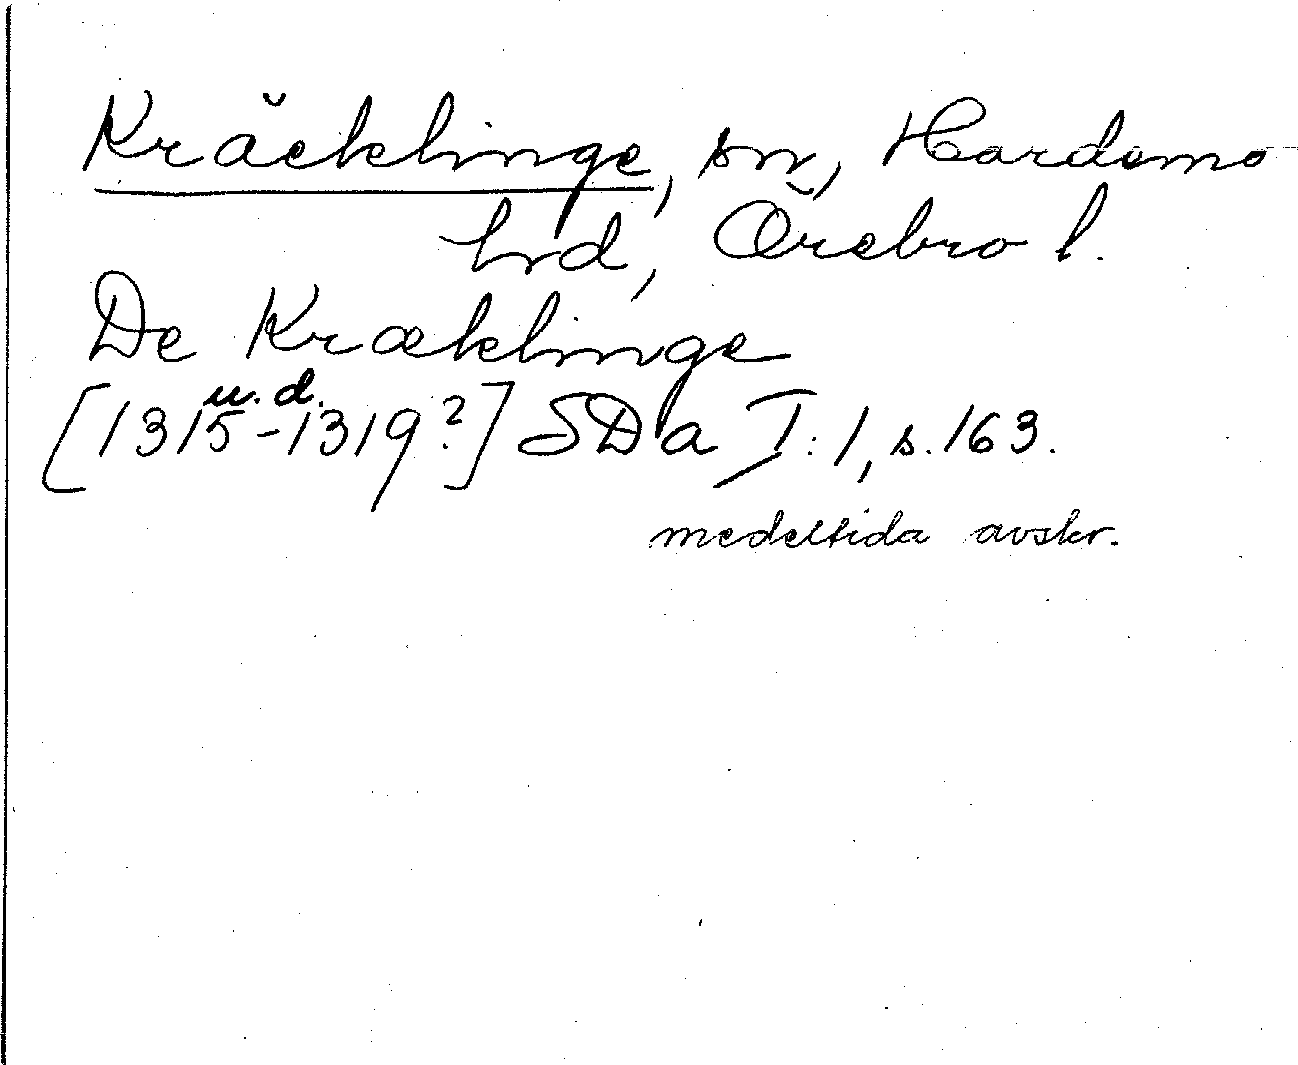 Kräcklinge, sn, Hardemo
hd, Örebro l.
De Kræklinge
u. d.
[1315-1319?] SDa I:1, s. 163.
medeltida avskr.